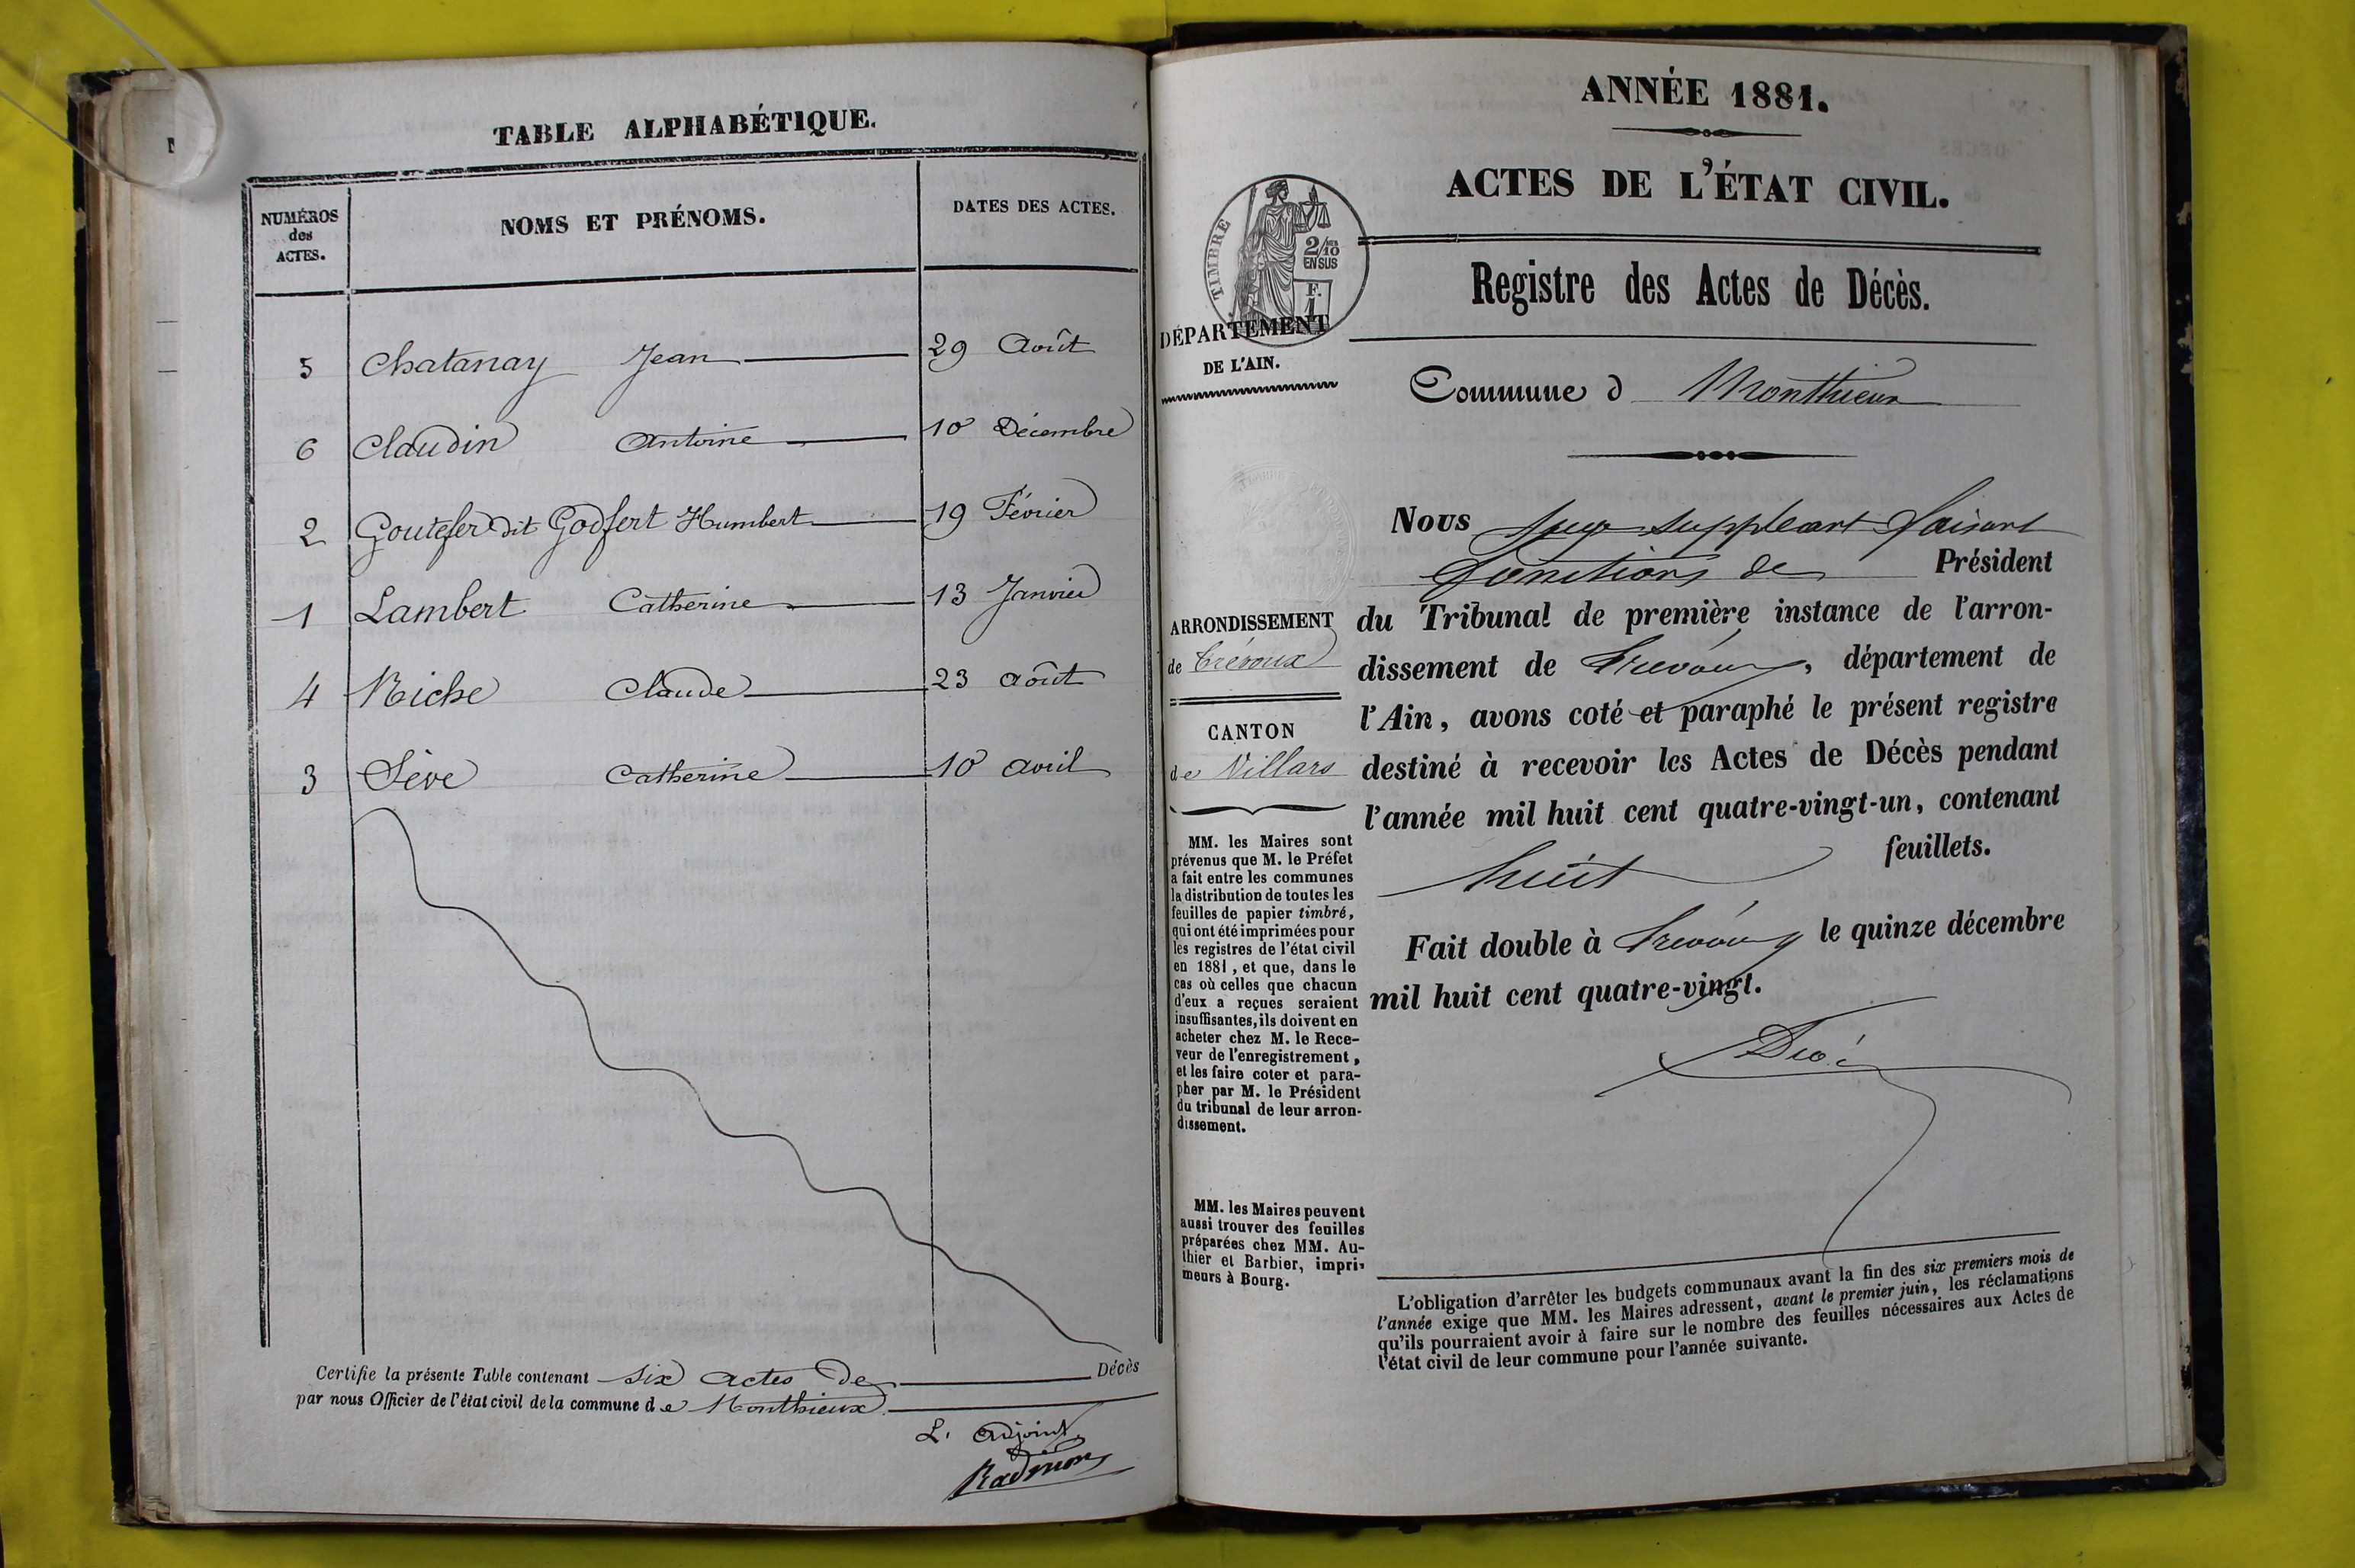 TABLE ALPHABÉTIQUE.
NUMÉROS des ACTES. NOMS ET PRÉNOMS. DATES DES ACTES.
5 Chatanay Jean 29 Août
6 Claudin Antoine 10 Décembre
2 Goutefer dit Godfert Humbert 19 Février
1 Lambert Catherine 13 Janvier
4 Riche Claude 23 août
3 Sève Catherine 10 avril
Certifie la présente Table contenant six actes de Décès
par nous Officier de l'état civil de la commune de Monthieux
L. Adjoint
ANNÉE 1881.
ACTES DE L'ÉTAT CIVIL.
TIMBRE
2/10
EN SUS
F.
1
DÉPARTEMENT
DE L'AIN.
Registre des Actes de Décès.
Commune d Monthieux
Nous Juge suppléant faisant
fonctions de Président
du Tribunal de première instance de l'arron-
dissement de Trevoux, département de
l'Ain, avons coté et paraphé le présent registre
destiné à recevoir les Actes de Décès pendant
l'année mil huit cent quatre-vingt-un, contenant
huit feuillets.
Fait double à Trevoux le quinze décembre
mil huit cent quatre-vingt.
ARRONDISSEMENT
de Trévoux
CANTON
de Villars
MM. les Maires sont
prévenus que M. le Préfet
a fait entre les communes
la distribution de toutes les
feuilles de papier timbré,
qui ont été imprimées pour
les registres de l'état civil
en 1881, et que, dans le
cas où celles que chacun
d'eux a reçues seraient
insuffisantes, ils doivent en
acheter chez M. le Rece-
veur de l'enregistrement,
et les faire coter et para-
pher par M. le Président
du tribunal de leur arron-
dissement.
MM. les Maires peuvent
aussi trouver des feuilles
préparées chez MM. Au-
thier et Barbier, impri-
meurs à Bourg.
L'obligation d'arrêter les budgets communaux avant la fin des six premiers mois de
l'année exige que MM. les Maires adressent, avant le premier juin, les réclamations
qu'ils pourraient avoir à faire sur le nombre des feuilles nécessaires aux Actes de
l'état civil de leur commune pour l'année suivante.